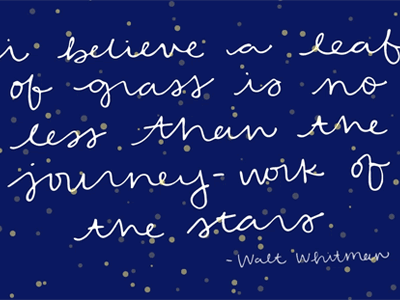 i believe a leaf
of grass is no
less than the
journey-work of
the stars
-Walt Whitman